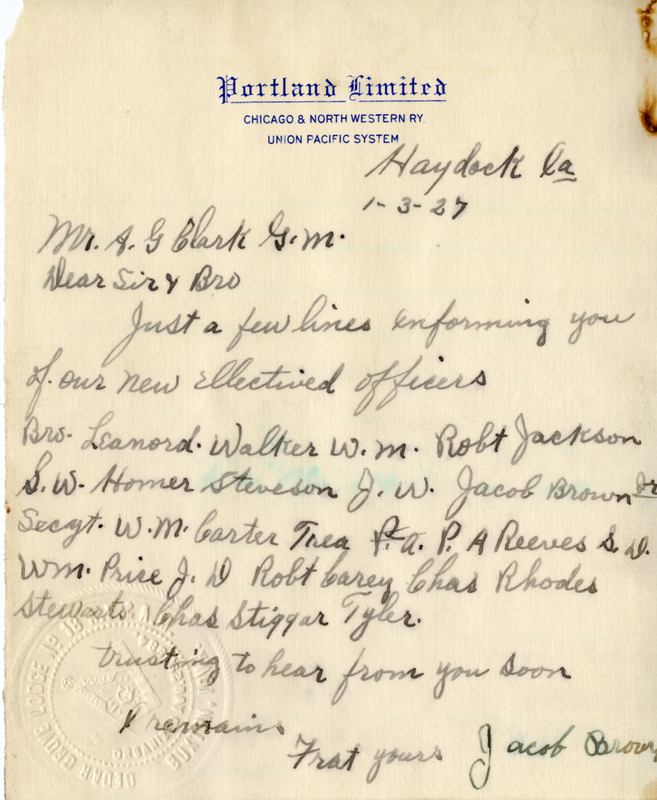 Portland Limited
CHICAGO & NORTH WESTERN RY.
UNION PACIFIC SYSTEM
Haydock Ia
1-3-27
Mr. A. G Clark G.M.
Dear Sir & Bro
Just a few lines enforming you
of our new ellectived officers
Bro. Leanord. Walker W.M. Robt Jackson
S.W. Homer Steveson J.W. Jacob Brown Jr
Secyt. W.M. Carter Trea P. A. P. A Reeves S. D.
Wm. Price J. D Robt Carey Chas Rhodes
Stewarts Chas Stiggar Tyler.
trusting to hear from you soon
I remains
Frat yours Jacob Brown
CEDAR GROVE LODGE No